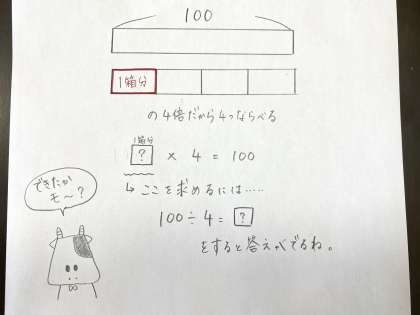 100
1箱分
の4倍だから4つならべる
1箱分
? × 4 = 100
↳ ここを求めるには‥‥‥
100÷4=?
をすると答えがでるね。
できたか
モ〜?